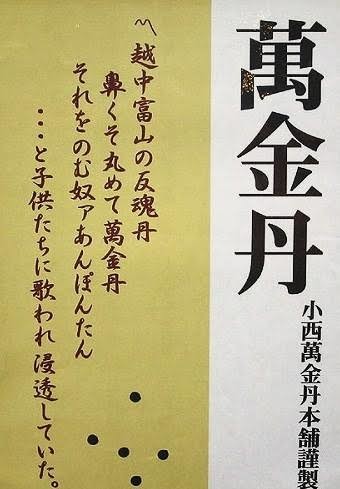 萬金丹
小西萬金丹本舗謹製
〽越中富山の反魂丹
鼻くそ丸めて萬金丹
それをのむ奴アあんぽんたん
…と子供たちに歌われ浸透していた。